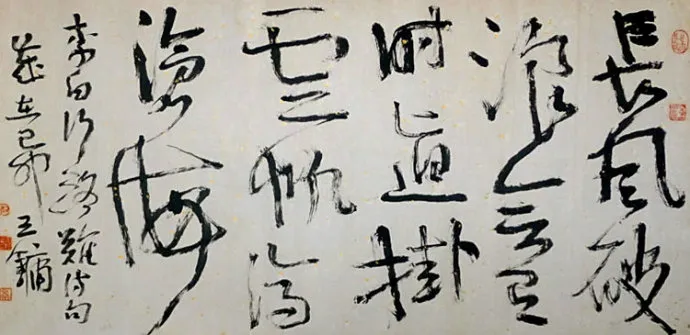 長风破
浪会有
时直掛
雲帆濟
滄海
李白行路難诗句
歲在己卯 王鏞